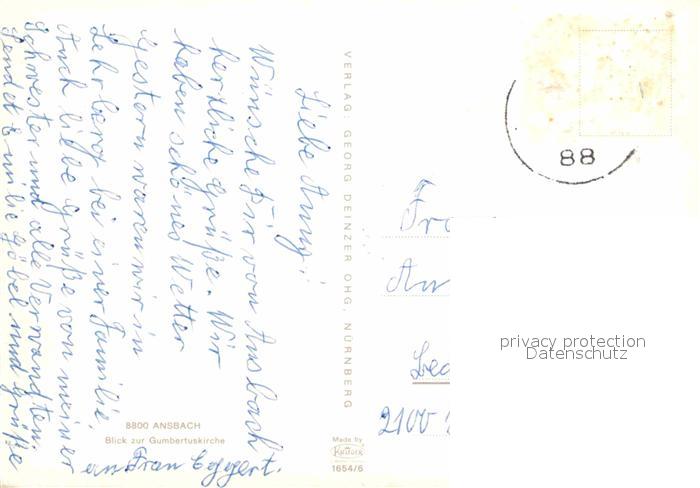 Liebe Anny!
Wünsche Dir von Ansbach
herzliche Grüße. Wir
haben schönes Wetter
Gestern waren wir in
Lehrberg bei einer Familie.
Auch liebe Grüße von meiner
Schwester und alle Verwandten.
Sendet Emilie Göbel und Grüße
an Frau Eggert.
8800 ANSBACH
Blick zur Gumbertuskirche
VERLAG: GEORG DEINZER OHG, NÜRNBERG
Made by
Krüger
1654/6
88
Fra
An
2100
privacy protection
Datenschutz